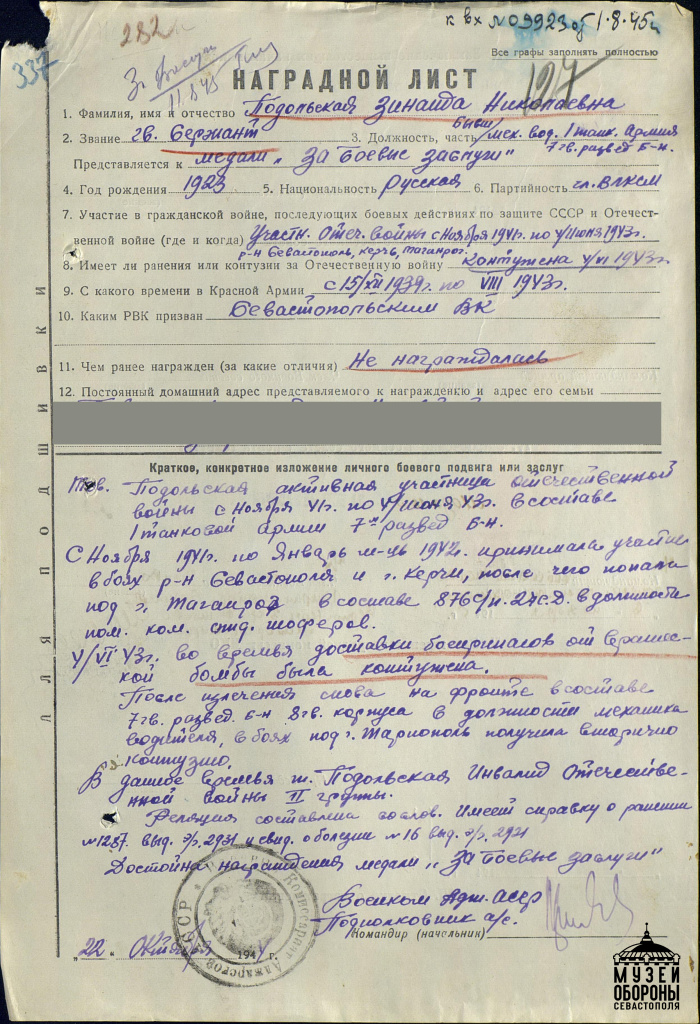 к вх №09923 об 1.8.45г
282
337
Все графы заполнять полностью
11.8.45
127
НАГРАДНОЙ ЛИСТ
1. Фамилия, имя и отчество Подольская Зинаида Николаевна
2. Звание гв. Сержант 3. Должность, часть бывш/мех. вод. 1 танк. Армия
7 гв. развед б-н.
Представляется к медали „За боевые заслуги"
4. Год рождения 1923 5. Национальность Русская 6. Партийность чл. ВЛКСМ
7. Участие в гражданской войне, последующих боевых действиях по защите СССР и Отечест-
венной войне (где и когда) Участн. Отеч. войны с Ноября 1941г. по 4/июня 1943г.
р-н Севастополь, Керчь, Таганрог.
8. Имеет ли ранения или контузии за Отечественную войну контужена 4/VI 1943г.
9. С какого времени в Красной Армии с 15/XII 1939г. по VIII 1943г.
10. Каким РВК призван Севастопольским ВК
11. Чем ранее награжден (за какие отличия) Не награждалась
12. Постоянный домашний адрес представляемого к награждению и адрес его семьи
ДЛЯ ПОДШИВКИ
Краткое, конкретное изложение личного боевого подвига или заслуг
Тов. Подольская активная участница отечественной
войны с Ноября 41г. по 4/июня 43г. в составе
1 танковой армии 7й развед б-н.
С Ноября 1941г. по Январь м-ць 1942г. принимала участие
в боях р-н Севастополя и г. Керчи, после чего попала
под г. Таганрог в составе 876 с/п. 27 с.Д. в должности
пом. ком. отд. шоферов.
4/VI 43г. во время доставки боеприпасов от вражес-
кой бомбы была контужена.
После излечения снова на фронте в составе
7 гв. развед. б-н 8 гв. корпуса в должности механика
водителя, в боях под г. Мариополь получила вторично
контузию.
В данное время т. Подольская Инвалид Отечестве-
нной войны II группы.
Реляция составлена со слов. Имеет справку о ранении
№1287. выд. э/г. 2931 и свид. о болезни №16 выд. э/г. 2931
Достойна награждения медали „За боевые заслуги"
Военком Адж. АССР
Подполковник а/с.
Командир (начальник)
„22" Октября 194 г.
МУЗЕЙ
ОБОРОНЫ
СЕВАСТОПОЛЯ